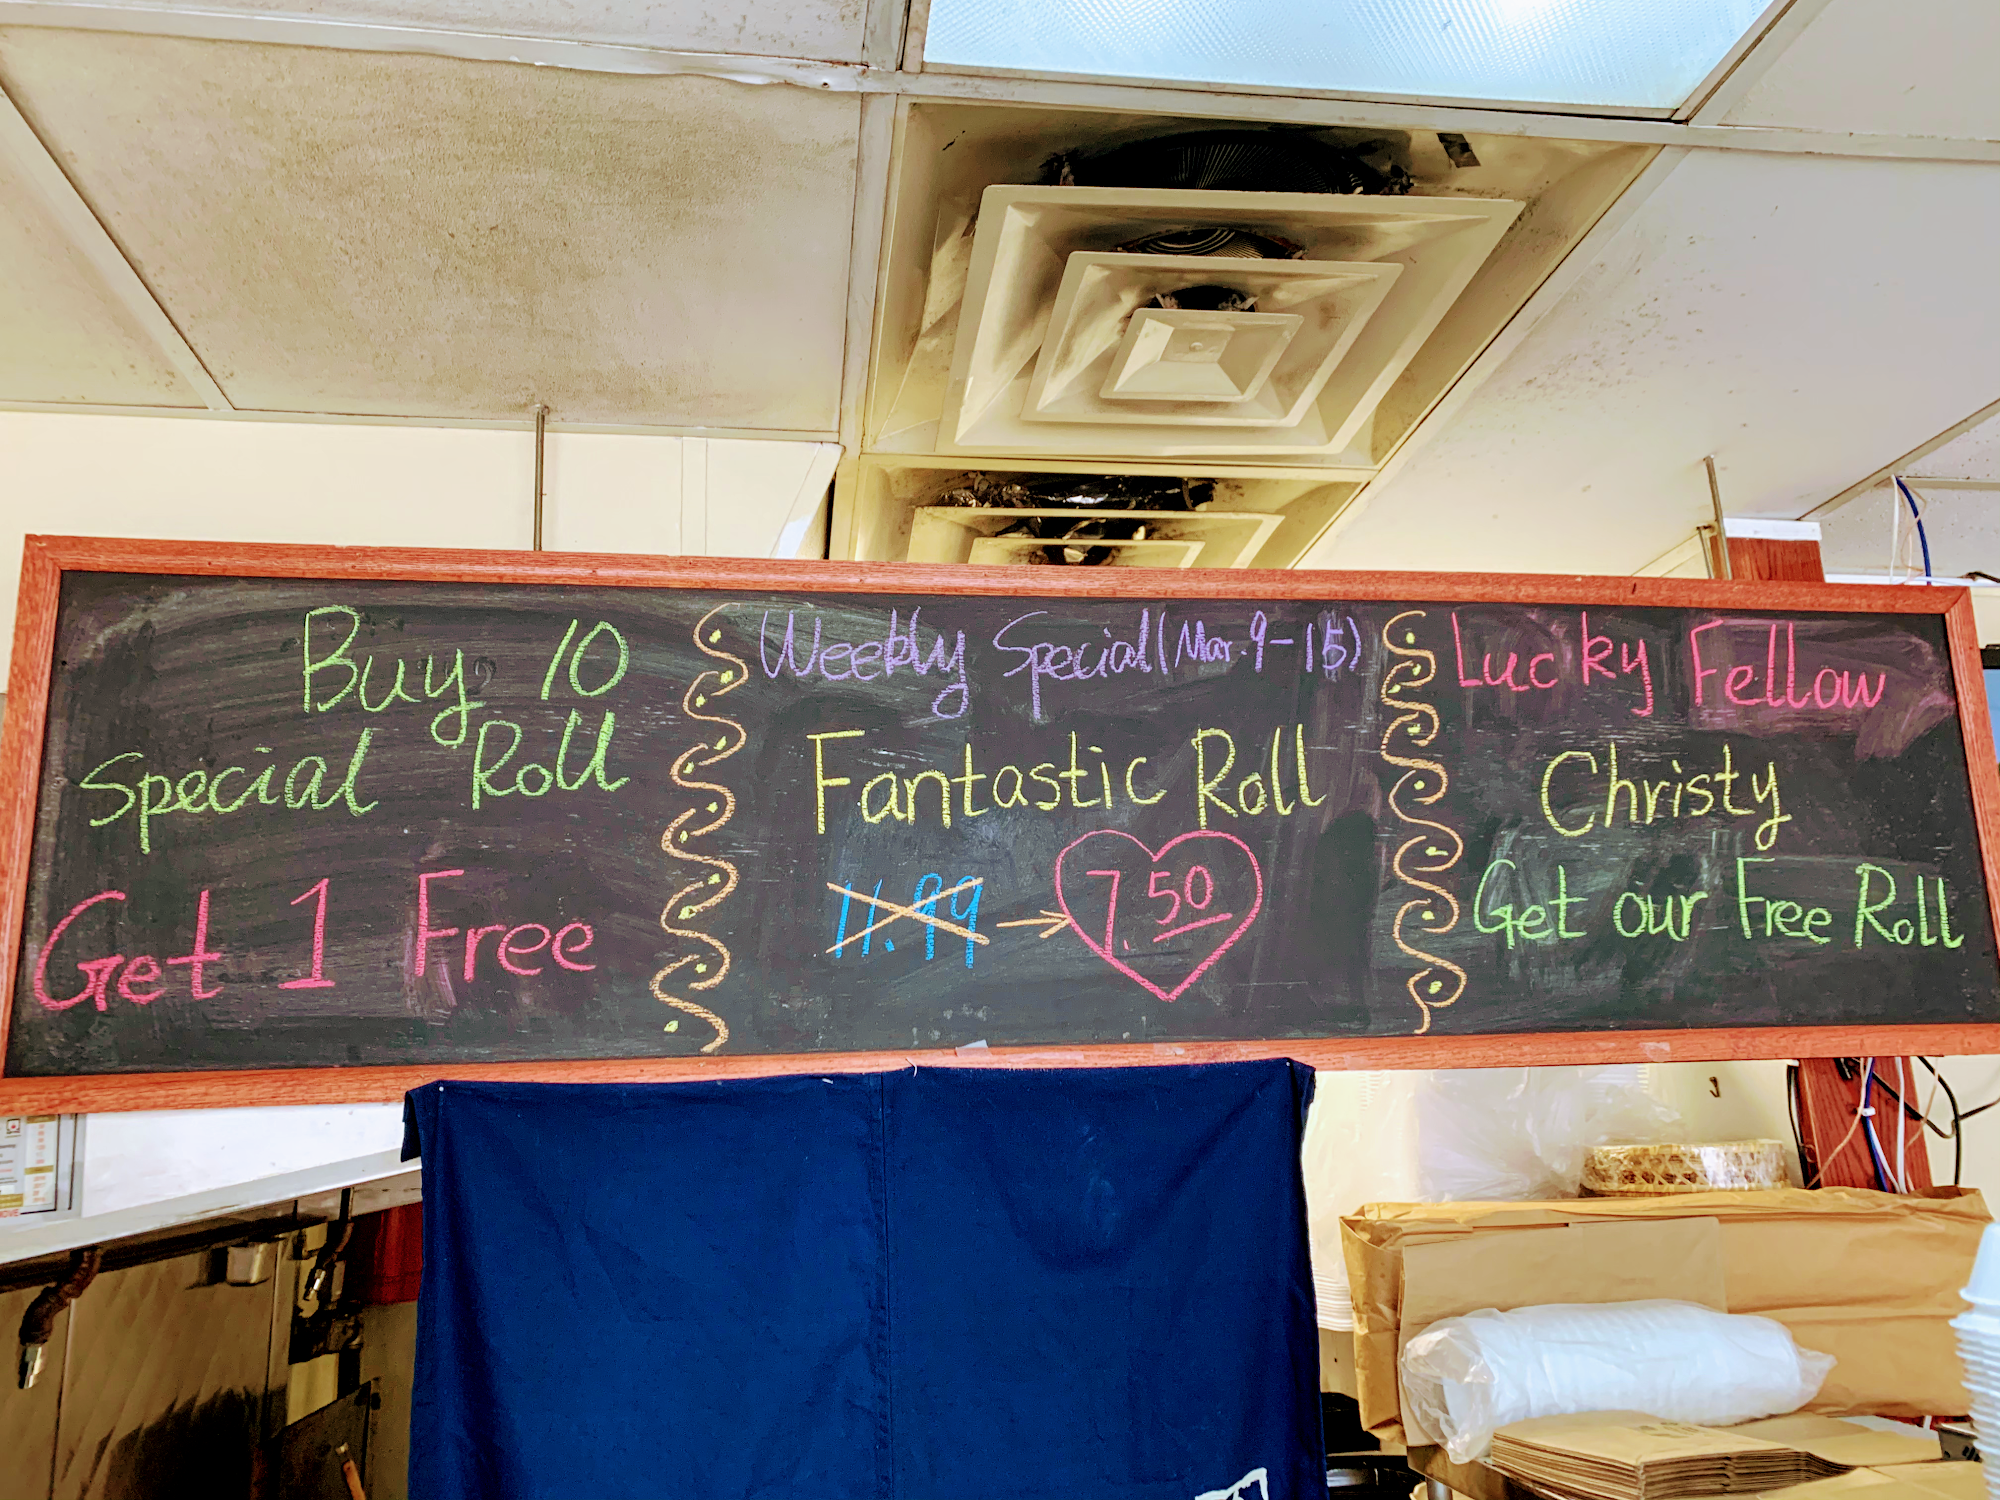 Buy 10
Special Roll
Get 1 Free
Weekly Special (Mar. 9-15)
Fantastic Roll
11.99 → 7.50
Lucky Fellow
Christy
Get our Free Roll